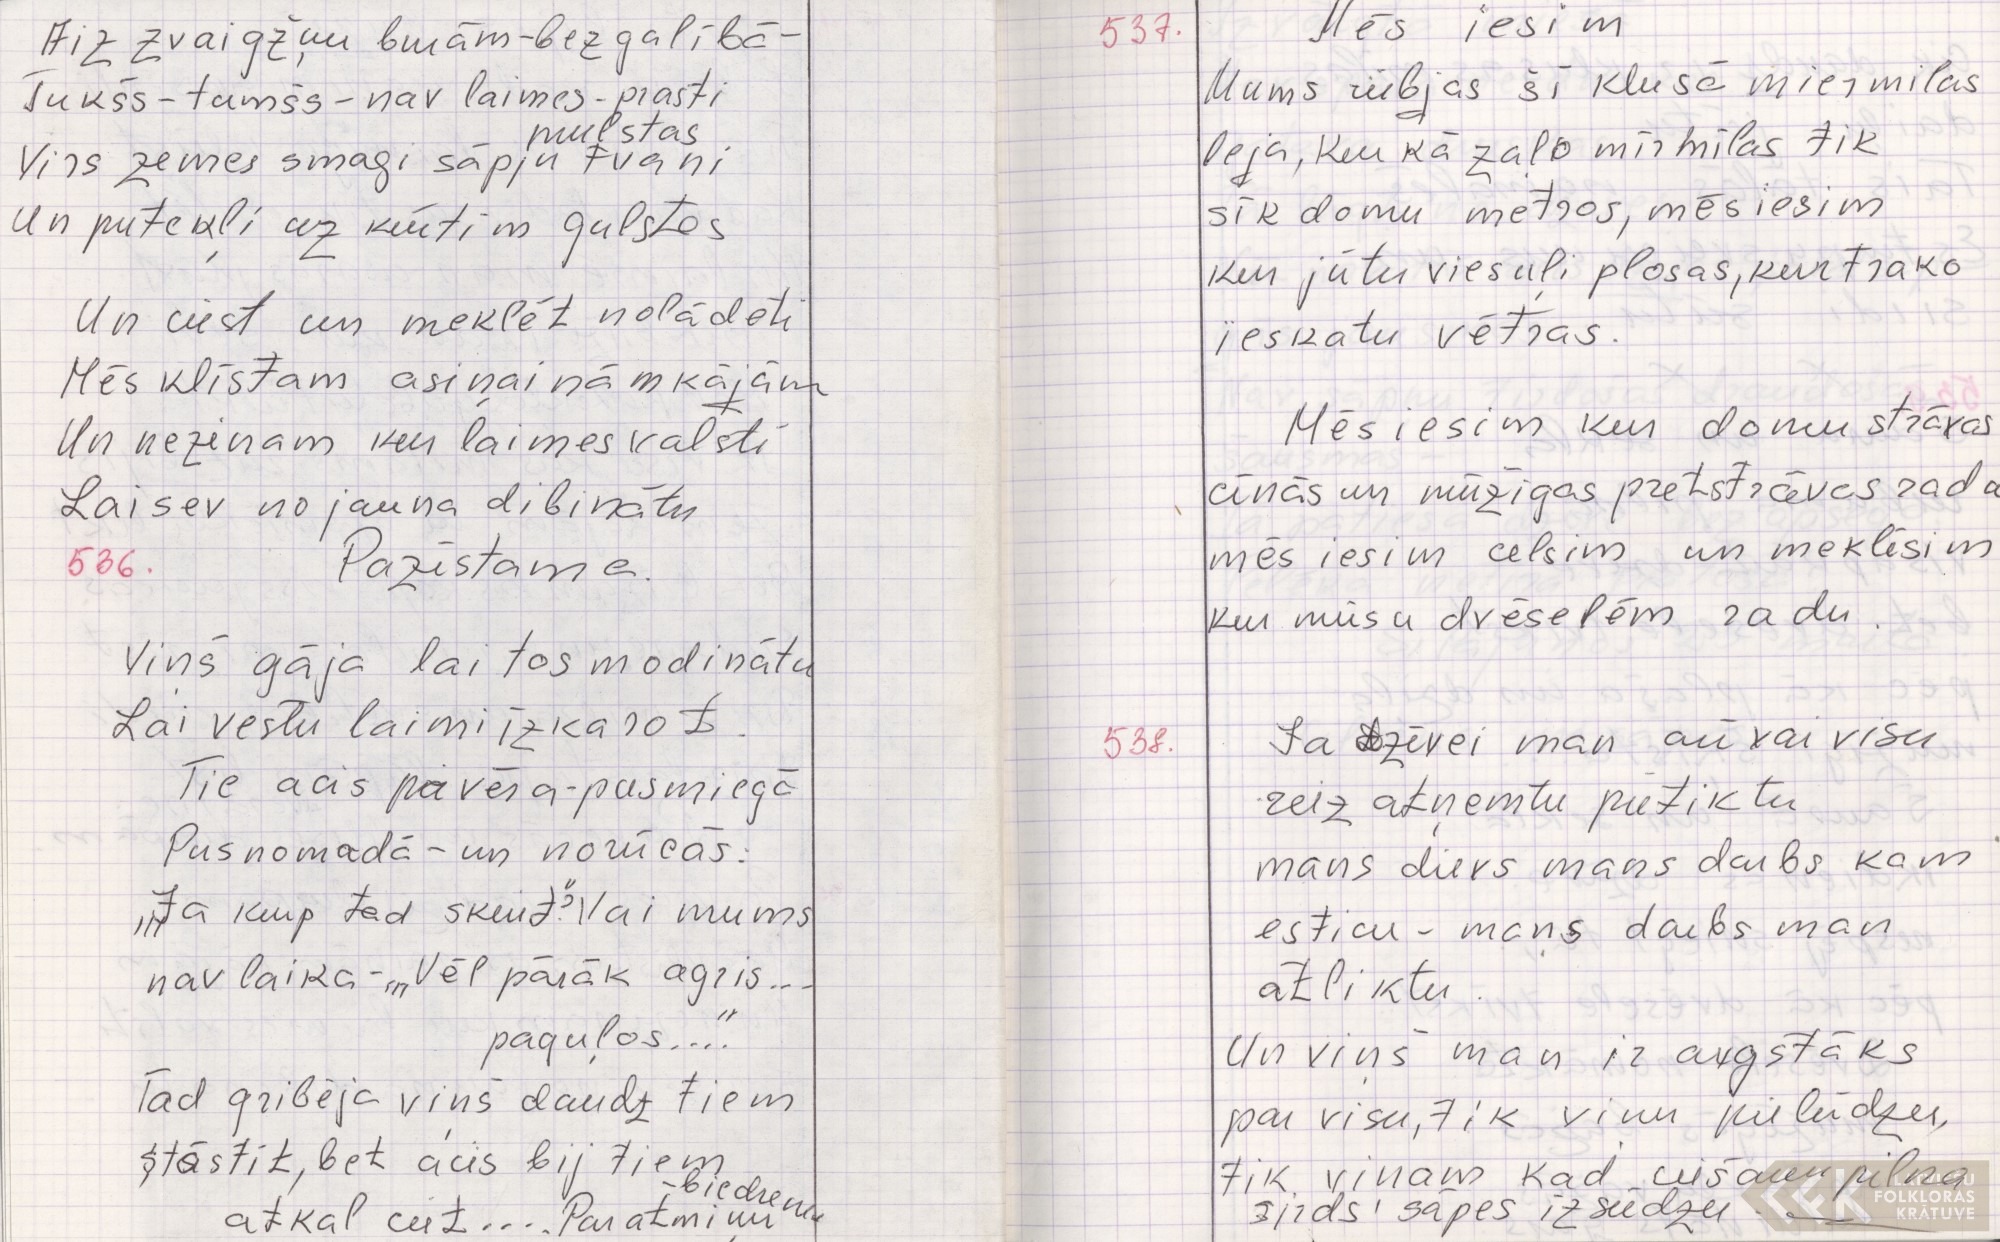 Aiz zvaigžņu burām-bezgalībā-
Tukšs-tumšs-nav laimes-prasti
mulstas
Virs zemes smagi sāpju tvaņi
Un putekļi uz krūtīm gulstos
Un ciest un meklēt nolādēti
Mēs klīstam asiņainām kājām
Un nezinam kur laimes valsti
Lai sev no jauna dibinātu
536. Pazīstama.
Viņš gāja lai tos modinātu
Lai vestu laimi izkarot.
Tie acis pavēra-pusmiegā
Pusnomodā-un norūcās:
„Ja kurp tad skriet?" Vai mums
nav laika-„Vēl pārāk agris...
paguļos...."
Tad gribēja viņš daudz tiem
stāstīt, bet acis bij tiem
-biedriem
atkal ciet.... Par atmiņu
537. Mēs iesim
Mums riebjas šī klusā miermīlas
leja, kur kā zaļo mirmīlas tik
sīk domu metros, mēs iesim
kur jūtu viesuļi plosas, kur trako
ieskatu vētras.
Mēs iesim kur domu strāvas
cīnās un mūžīgas pretstrāvas rada
mēs iesim celsim un meklēsim
kur mūsu dvēselēm radu.
538. Ja dzīvei man arī vai visu
reiz atņemtu pietiktu
mans dievs mans darbs kam
esticu - mans darbs man
atliktu.
Un viņš man ir augstāks
par visu, tik viņu pielūdzu,
tik viņam kad ciešanu pilna
sirds' sāpes izsūdzu.
LATVIEŠU
FOLKLORAS
KRĀTUVE